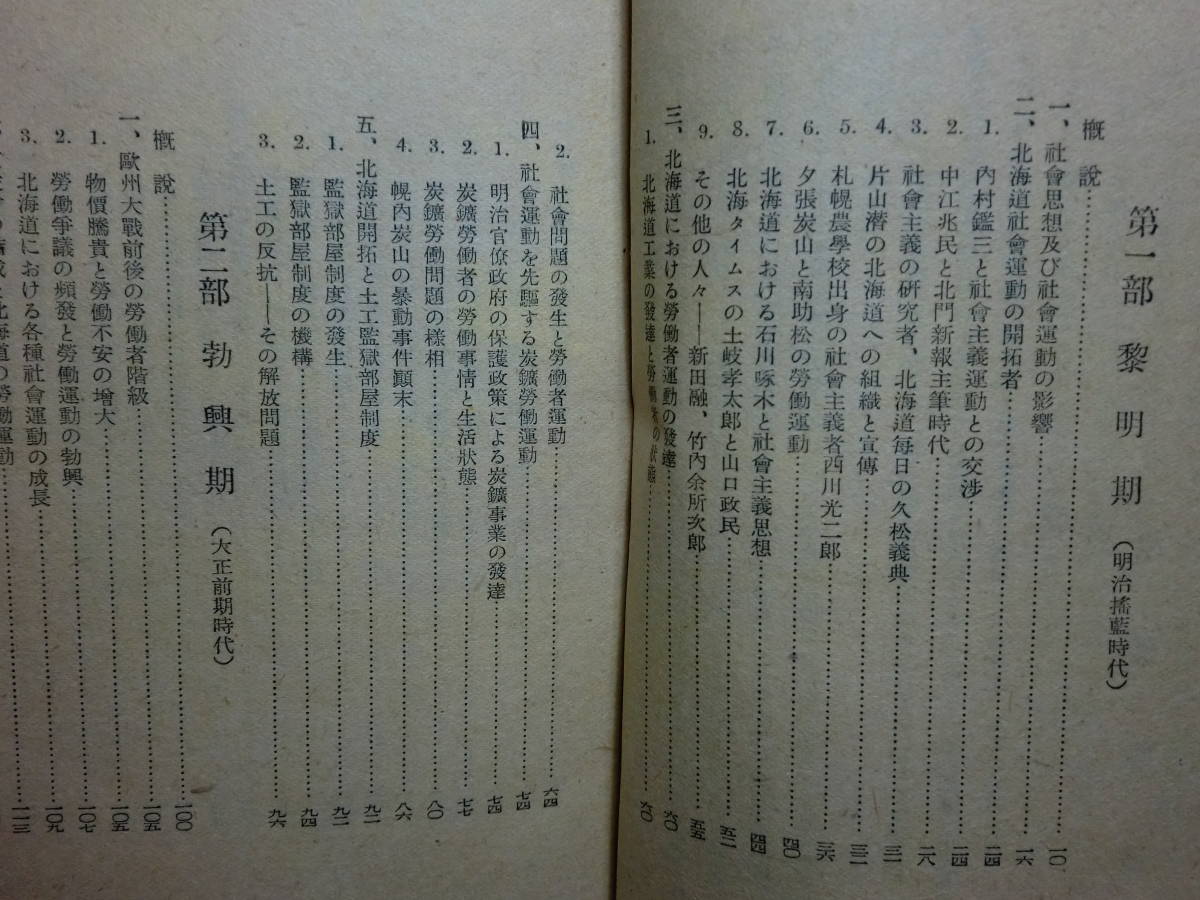 第一部 黎明期（明治搖藍時代）
概說……一〇
一、社會思想及び社會運動の影響……一六
二、北海道社會運動の開拓者……二四
1. 內村鑑三と社會主義運動との交涉……二四
2. 中江兆民と北門新報主筆時代……二八
3. 社會主義の研究者、北海道每日の久松義典……三一
4. 片山潛の北海道への組織と宣傳……三二
5. 札幌農學校出身の社會主義者西川光二郎……三六
6. 夕張炭山と南助松の勞働運動……四〇
7. 北海道における石川啄木と社會主義思想……四四
8. 北海タイムスの土岐孝太郎と山口政民……五二
9. その他の人々――新田融、竹內余所次郎……五五
三、北海道における勞働者運動の發達……六〇
1. 北海道工業の發達と勞働者の狀態……六〇
2. 社會問題の發生と勞働者運動……六四
四、社會運動を先驅する炭鑛勞働運動……七四
1. 明治官僚政府の保護政策による炭鑛事業の發達……七四
2. 炭鑛勞働者の勞働事情と生活狀態……七七
3. 炭鑛勞働問題の樣相……八〇
4. 幌內炭山の暴動事件顚末……八六
五、北海道開拓と土工監獄部屋制度……九二
1. 監獄部屋制度の發生……九二
2. 監獄部屋制度の機構……九四
3. 土工の反抗――その解放問題……九六
第二部 勃興期（大正前期時代）
概說……一〇〇
一、歐州大戰前後の勞働者階級……一〇五
1. 物價騰貴と勞働不安の增大……一〇五
2. 勞働爭議の頻發と勞働運動の勃興……一〇七
3. 北海道における各種社會運動の成長……一〇九
北海道の勞働運動……一一三